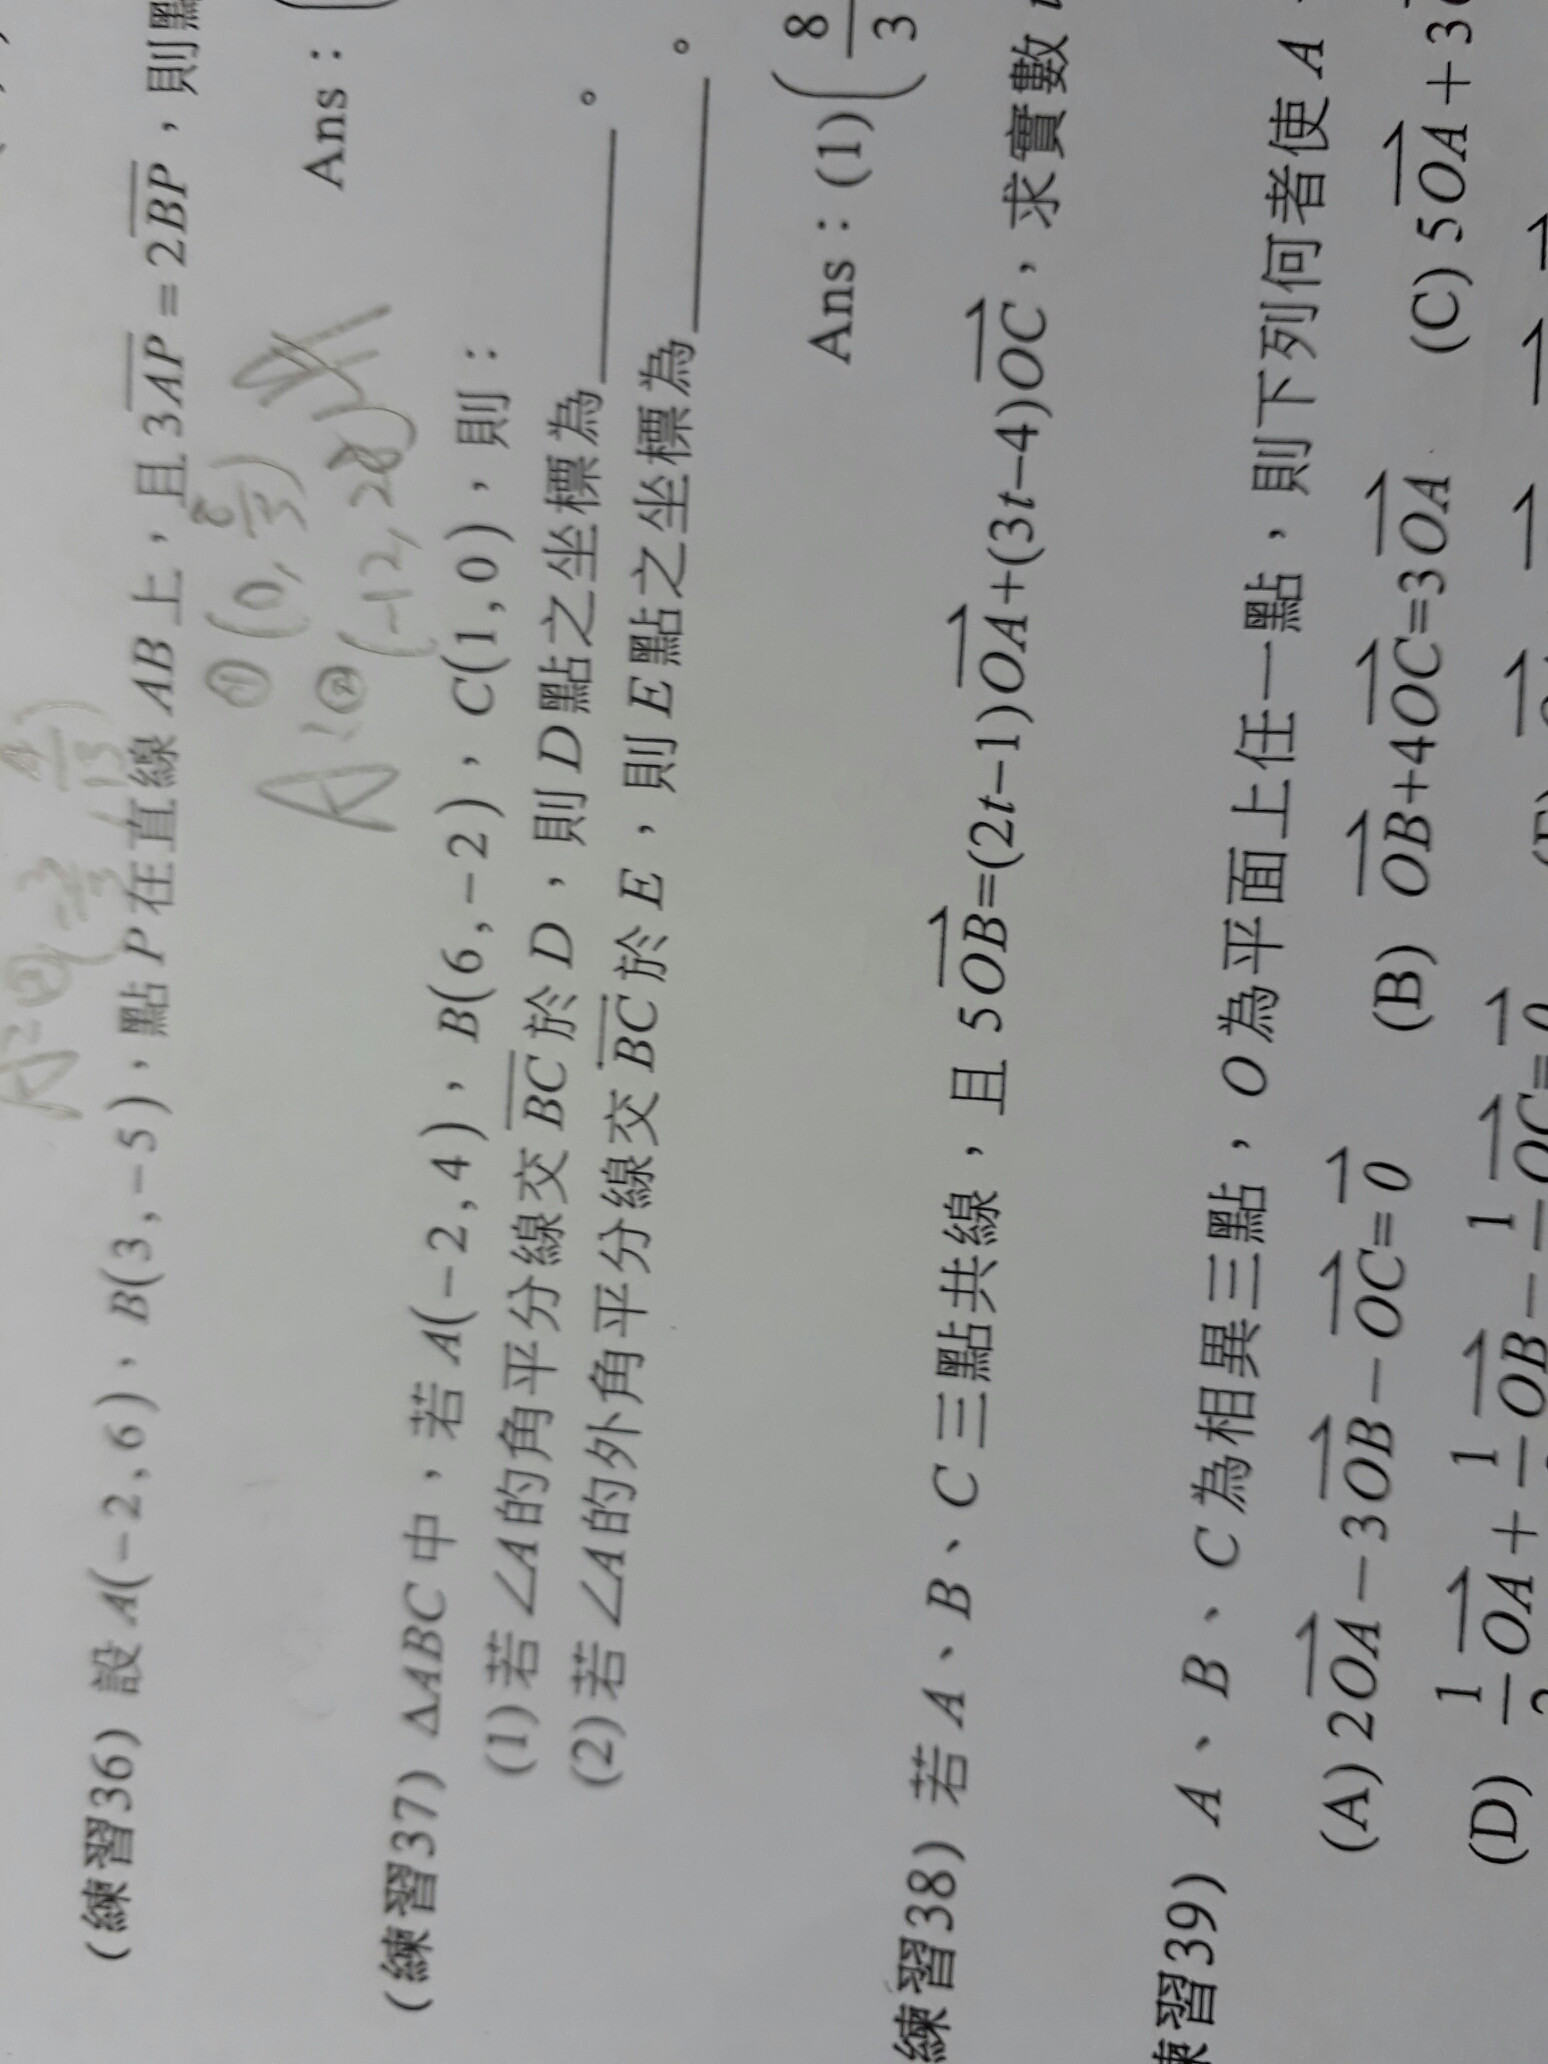 (練習36) 設 A(−2,6)、B(3,−5)，點 P 在直線 AB 上，且 3AP = 2BP，則
Ans：
① (0, 8/3)
A：② (−12, 28)
(練習37) ΔABC 中，若 A(−2,4)，B(6,−2)，C(1,0)，則：
(1) 若∠A的角平分線交 BC 於 D，則 D 點之坐標為______。
(2) 若∠A的外角平分線交 BC 於 E，則 E 點之坐標為______。
Ans：(1)(8/3
練習38) 若 A、B、C 三點共線，且 5OB=(2t−1)OA+(3t−4)OC，求實數
練習39) A、B、C 為相異三點，O 為平面上任一點，則下列何者使 A
(A) 2OA−3OB−OC=0 (B) OB+4OC=3OA (C) 5OA+3
(D) OA+ OB− OC=0